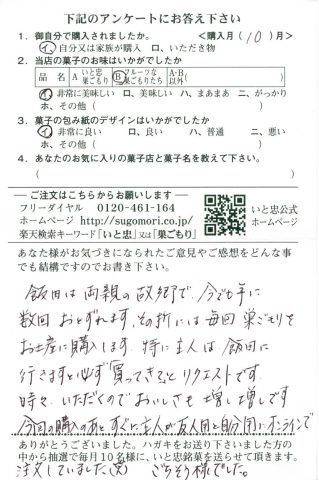 下記のアンケートにお答え下さい
1. 御自分で購入されましたか。 <購入月( 10 )月>
イ、自分又は家族が購入 ロ、いただき物
2. 当店の菓子のお味はいかがでしたか
品名 A いと忠巣ごもり B フルーツな巣ごもりたち A・B以外( )
イ、非常に美味しい ロ、美味しい ハ、まあまあ ニ、がっかり
ホ、その他( )
3. 菓子の包み紙のデザインはいかがでしたか
イ、非常に良い ロ、良い ハ、普通 ニ、悪い
ホ、その他( )
4. あなたのお気に入りの菓子店と菓子名を教えて下さい。
( )
ご注文はこちらからお願いします
フリーダイヤル 0120-461-164
ホームページ http://sugomori.co.jp/
楽天検索キーワード「いと忠」又は「巣ごもり」
いと忠公式
ホームページ
あなた様がお気づきになられたご意見やご感想をどんな事
でも結構ですのでお書き下さい。
飯田は両親の故郷で、今でも年に
数回おとずれます。その折には毎回巣ごもりを
お土産に購入します。特に主人は飯田に
行きますと必ず"買ってきて"とリクエストです。
時々いただくのでおいしさも増し増しです
今回の購入のあとすぐに主人が友人用と自分用にオンラインで
ありがとうございました。ハガキをお送り下さいました方の
中から抽選で毎月10名様に、いと忠銘菓を送らせて頂きます。
注文していました(笑) ごちそう様でした。